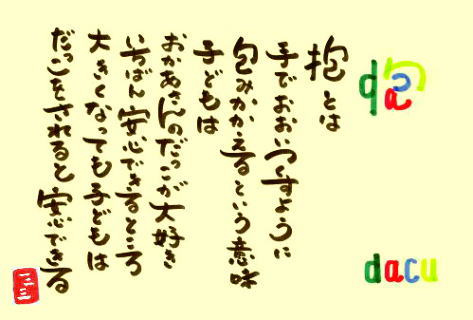 抱とは
手でおおいつくすように
包みかかえるという意味
子どもは
おかあさんのだっこが大好き
いちばん安心できるところ
大きくなっても子どもは
だっこをされると安心できる
dacu